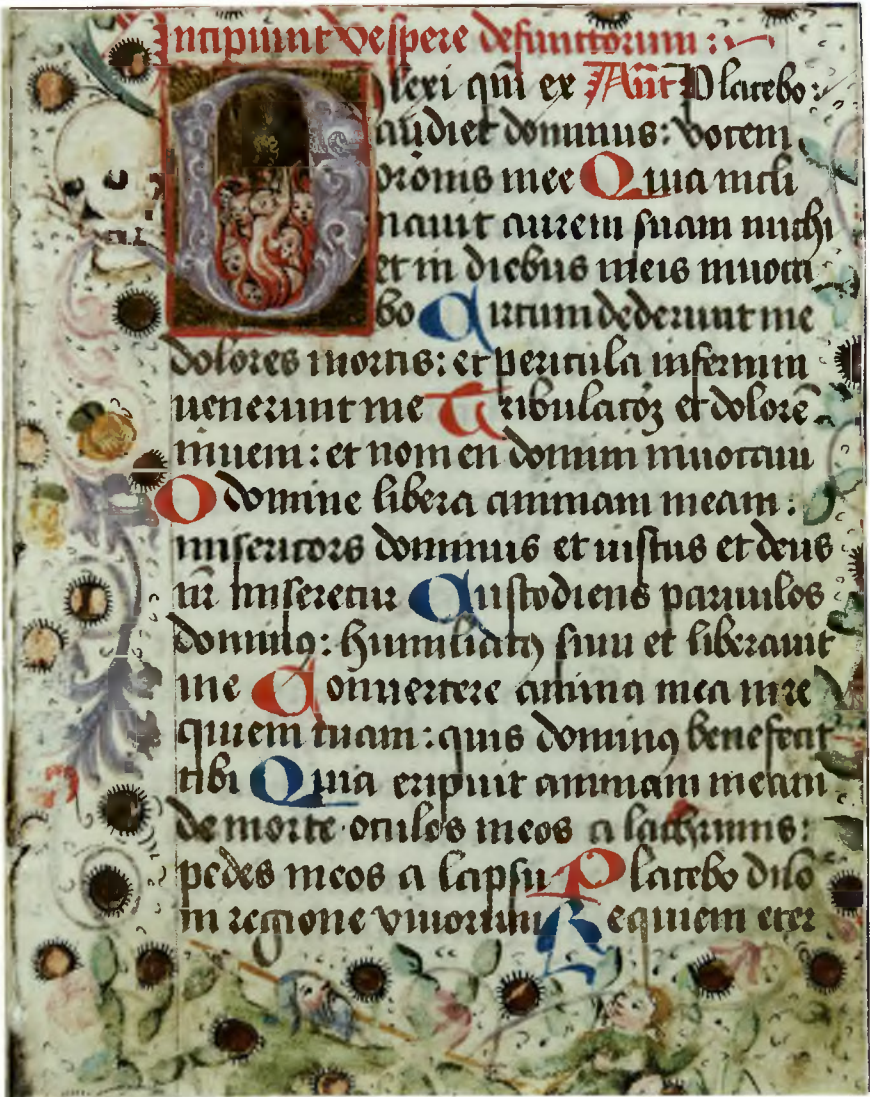 Incipiunt vespere defunctorum :
Dilexi qm̄ ex Añt Placebo :
audiet dominus : vocem
oronis mee Quia incli
nauit aurem suam michi
et in diebus meis inuoca
bo Circumdederunt me
dolores mortis : et pericula inferni
uenerunt me Tribulacōꝫ et dolorē
inueni : et nomen domini inuocaui
O domine libera animam meam :
misericors dominus et iustus et deus
nr̄ miseretur Custodiens paruulos
dominꝰ : humiliatꝰ sum et liberauit
me Conuertere anima mea in re
quiem tuam : quia dominꝰ benefecit
tibi Quia eripuit animam meam
de morte oculos meos a lachrimis :
pedes meos a lapsu Placebo dño
in regione viuorum Requiem eter